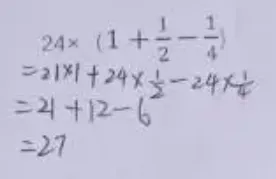 24× (1 + 1/2 − 1/4)
=21×1+24×1/2−24×1/4
=21+12−6
=27